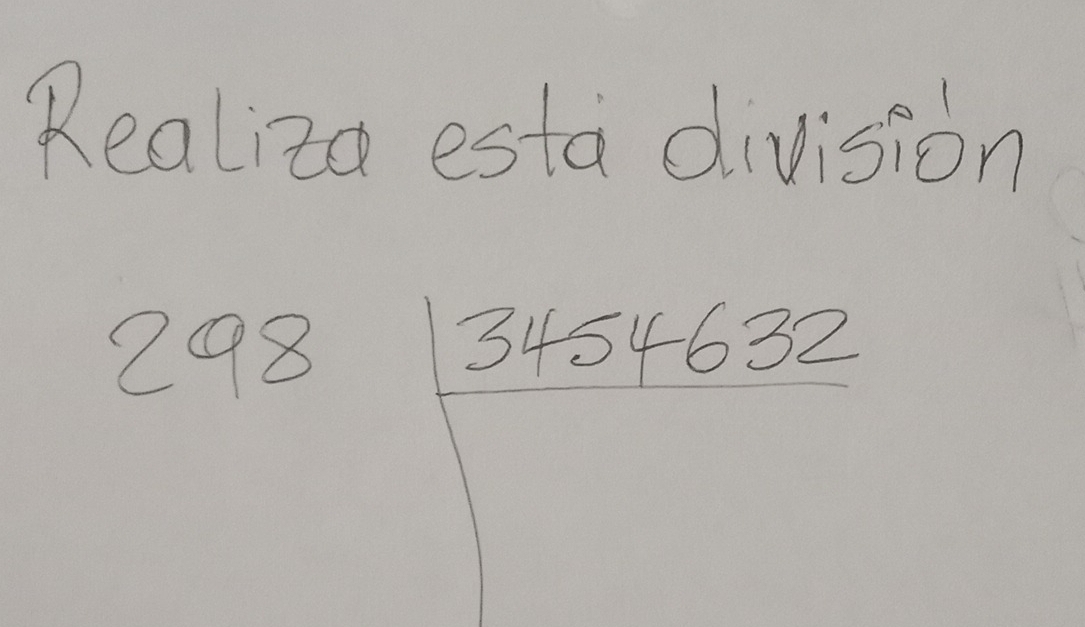 Realiza está división
298 3454632